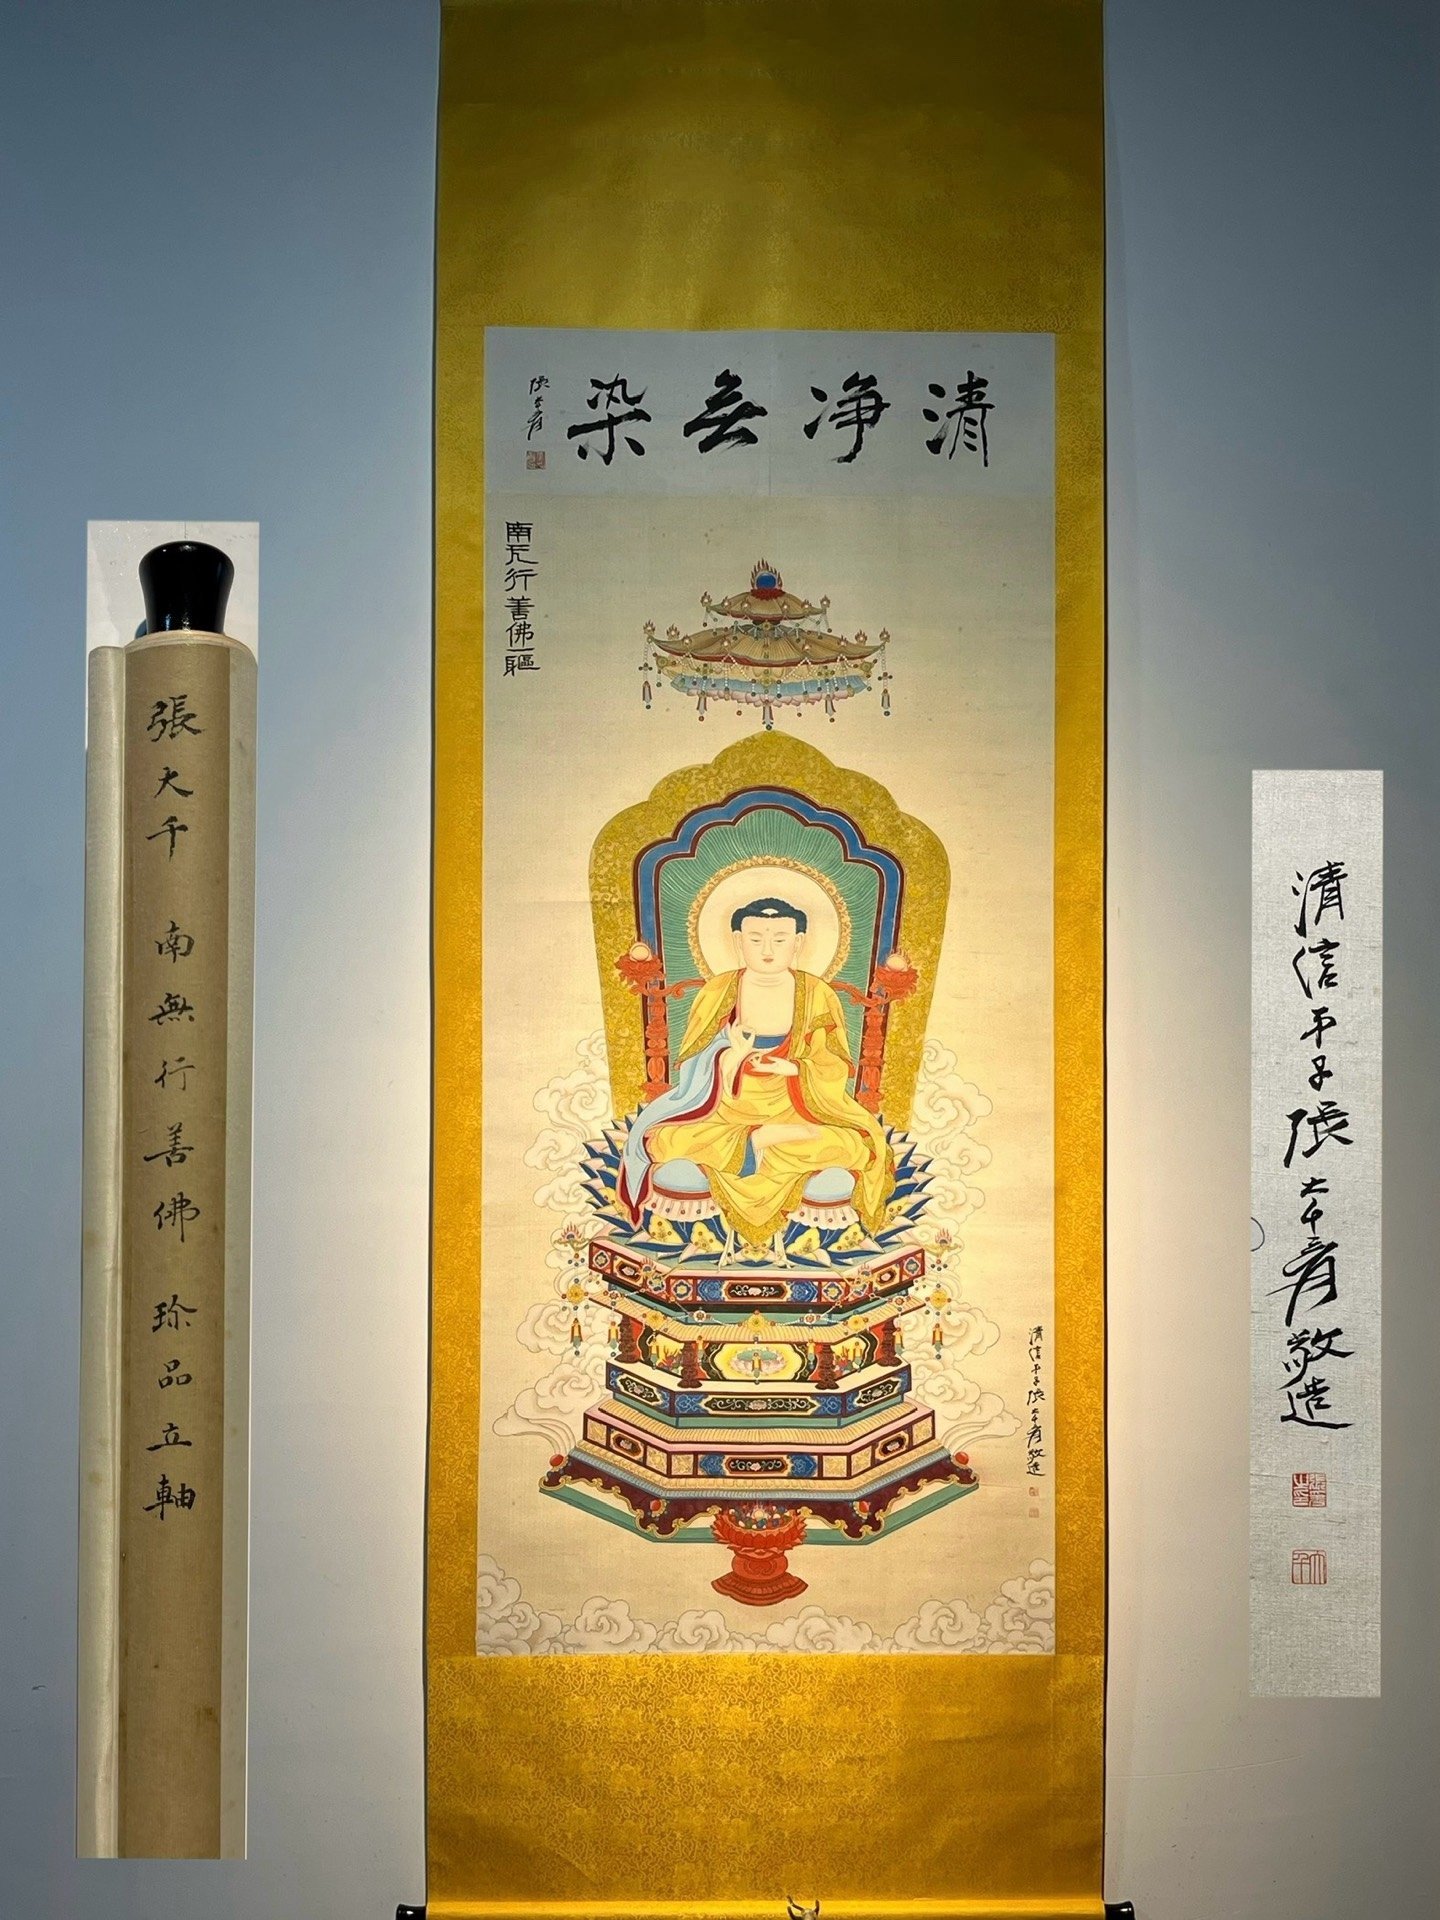 清净无染
張大千爰
南无行善佛一軀
清信弟子張大千爰敬造
張大千 南無行善佛 珍品立軸
清信弟子張大千爰敬造
張爰之印
大千